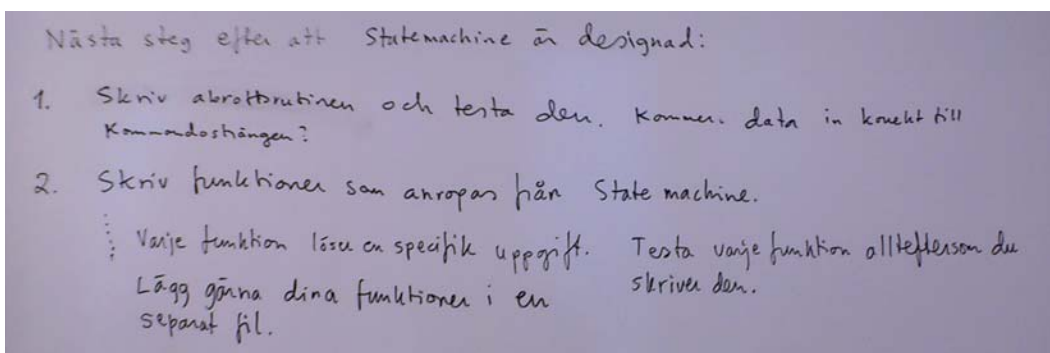 Nästa steg efter att Statemachine är designad:
1. Skriv abrottsrutinen och testa den. Kommer data in korrekt till
Kommandosträngen?
2. Skriv funktioner som anropas från State machine.
Varje funktion löser en specifik uppgift. Testa varje funktion allteftersom du
skriver den.
Lägg gärna dina funktioner i en
separat fil.